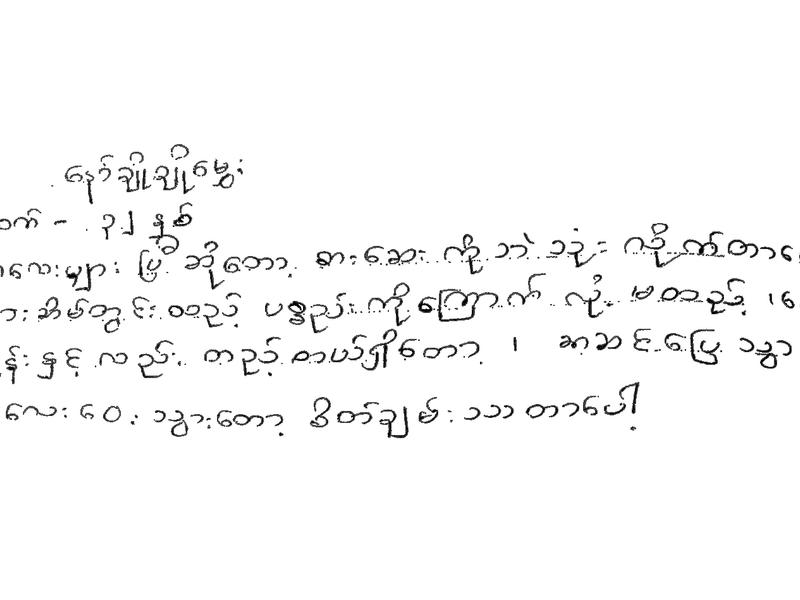 နော်ချိုချိုမွှေး
သက် - ၃၂ နှစ်
လေးများ ပြီ ဆိုတော့ စားဆေး ကို ဘဲ သုံး လို့ က်တာ
အိမ်တွင်း သည့် ပစ္စည်း ကို ကြောက် လို့ မ သည့် ၊
န်း နှင့် လည်း တည့် တယ်ရှိတော့ ၊ အဆင်ပြေ သွာ
လေး ဝေး သွားတော့ စိတ်ချမ်း သာ တာပေါ့